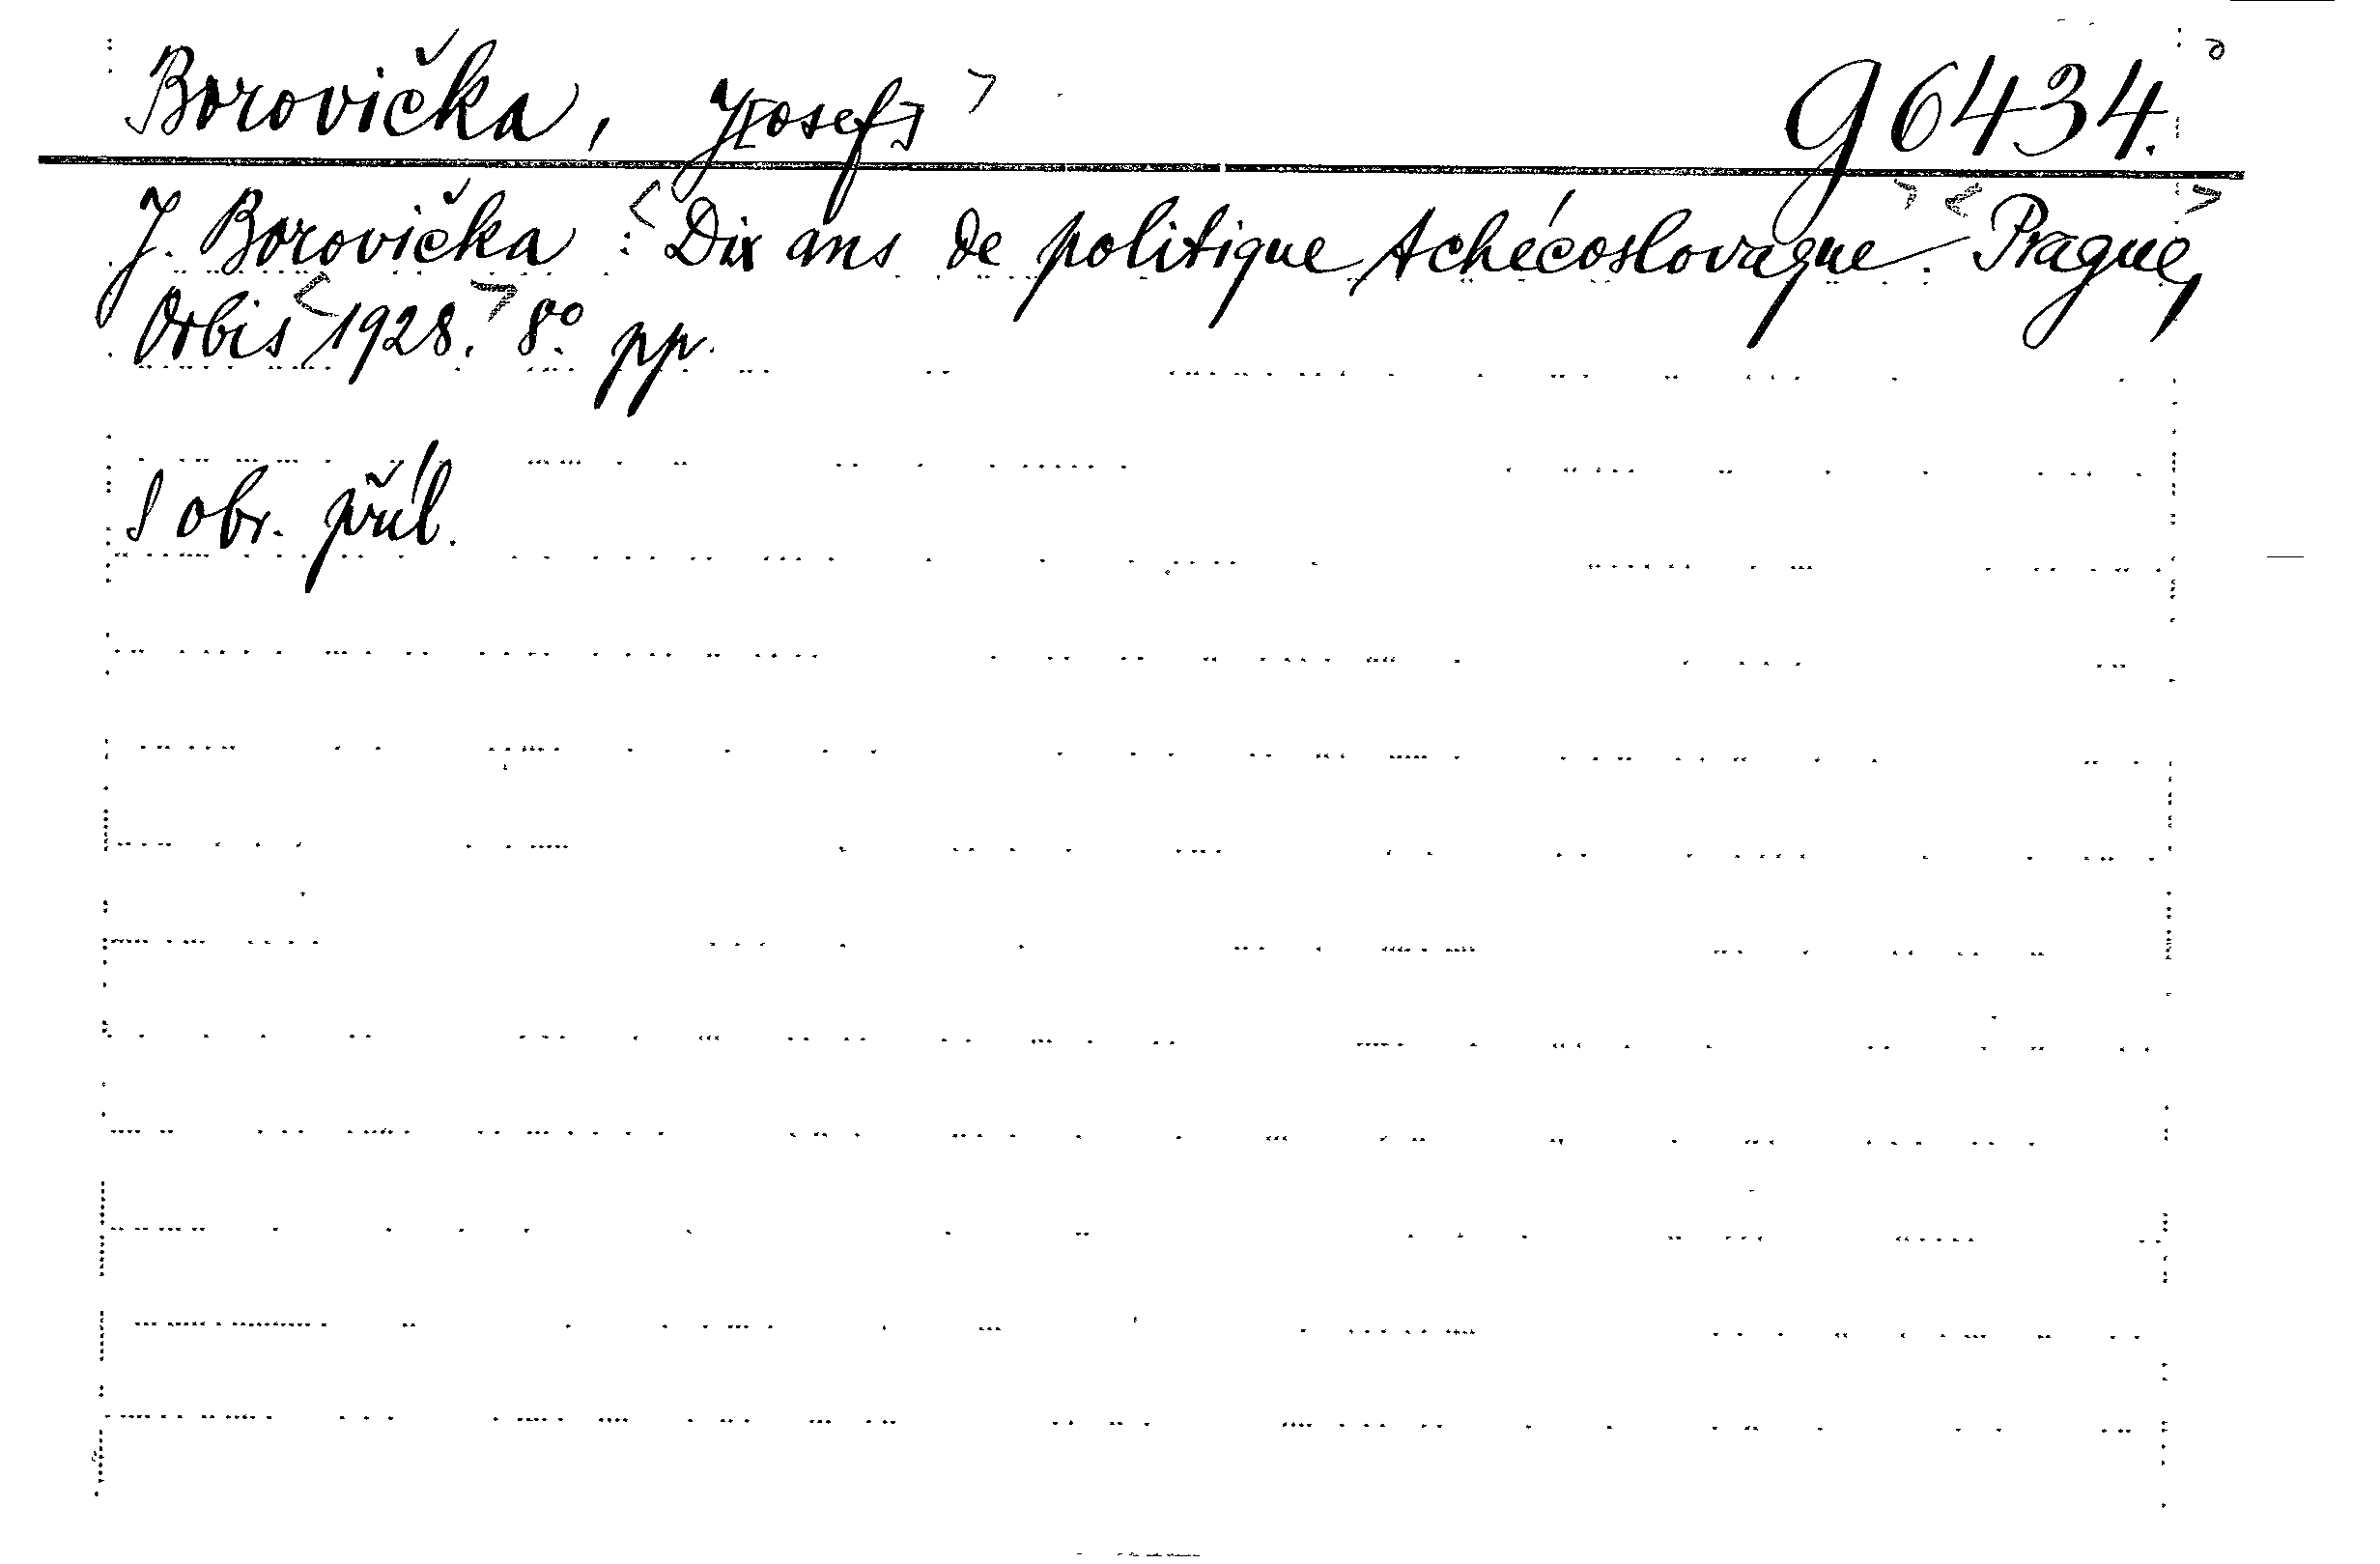 Borovička, J[osef] > g 6434.
J. Borovička : < Dix ans de politique tchécoslovaque. > < Prague, >
Orbis < 1928. > 8° pp.
S obr. příl.